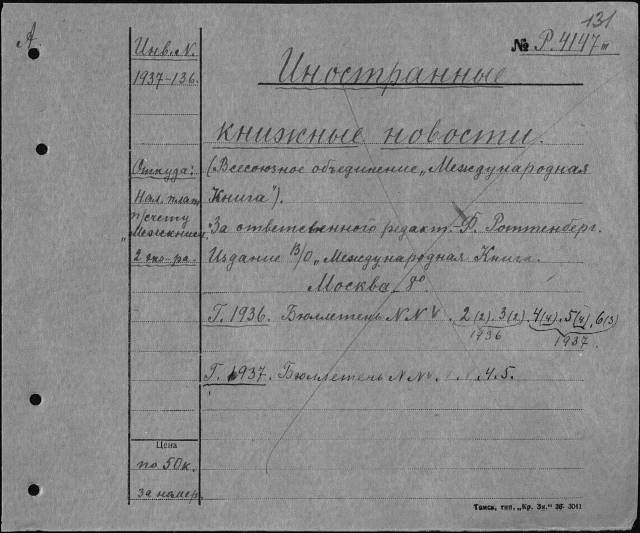 131
А
№ Р.4147 III
Инв. N.
1937-136.
Иностранные
книжные новости.
Откуда:
(Всесоюзное объединение „Международная
Нал. плат.
Книга").
п/счету
За ответственного редакт. Ф. Роттенберг.
2 экз-ра.
Издание В/О „Международная Книга.
Москва. 8º
Г. 1936. Бюллетень N N 2 (2), 3 (2), 4 (4), 5 (4), 6 (3)
1936 1937.
Г. 1937. Бюллетень N N 4. 5.
Цена
по 50к.
за номер.
Томск, тип. „Кр. Зн." 36 3041